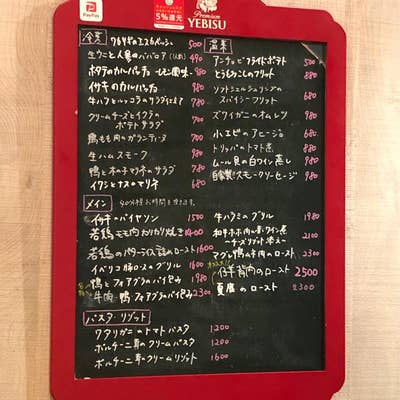 PayPay
5%還元
Premium
YEBISU
冷菜
ワカサギのエスカベッシュ 500
生ウニと人参のババロア 490
ホタテのカルパッチョ セビ風味 980
イサキのカルパッチョ 980
牛ハツとルッコラのサラダ仕立て 780
クリームチーズとイクラの
ポテトサラダ 780
鶏もも肉のガランティーヌ 700
生ハムスモーク 980
鴨と木の子マリネのサラダ 780
イワシとナスのマリネ 680
温菜
アンチョビフライドポテト 550
とうもろこしのフリット 880
ソフトシェルシュリンプの
スパイシーフリット 680
ズワイガニのオムレツ 980
小エビのアヒージョ 680
トリッパのトマト煮 880
ムール貝の白ワイン蒸し 980
自家製スモークソーセージ 980
メイン
イサキのパイヤソン 1500
若鶏モモ肉カリカリ焼き 1400
若鶏のバターライス詰めロースト 1600
イベリコ豚ロースのグリル 1600
鴨とフォアグラのパイ包み 1980
牛肉、鴨、フォアグラのパイ包み 2300
牛ハラミのグリル 1980
和牛ホホ肉の赤ワイン煮
チーズリゾット添え 2100
マグレ鴨ムネ肉のロースト 2300
仔羊背肉のロースト 2500
夏鹿のロースト 2300
パスタ・リゾット
ワタリガニのトマトパスタ 1200
ポルチーニ茸のクリームパスタ 1200
ポルチーニ茸のクリームリゾット 1600